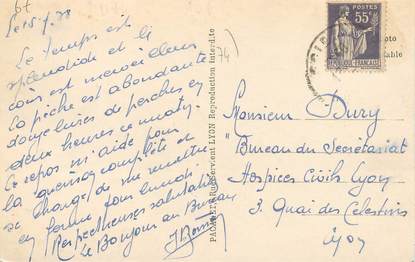 67
le 15-7-38
Le temps est
splendide et le
coin est merveilleux
la pêche est abondante
douze livres de perches en
deux heures ce matin.
Ce repos m'aide pour
la guérison complète et
se charge de me remettre
en forme pour lundi.
Respectueuses salutations
Le Bonjour au Bureau
(74)
PACALET Rue Servient LYON Reproduction interdite
POSTES
55c
RÉPUBLIQUE FRANÇAISE
Monsieur Dury
Bureau du Secrétariat
Hospices Civils Lyon
3. Quai des Célestins
Lyon